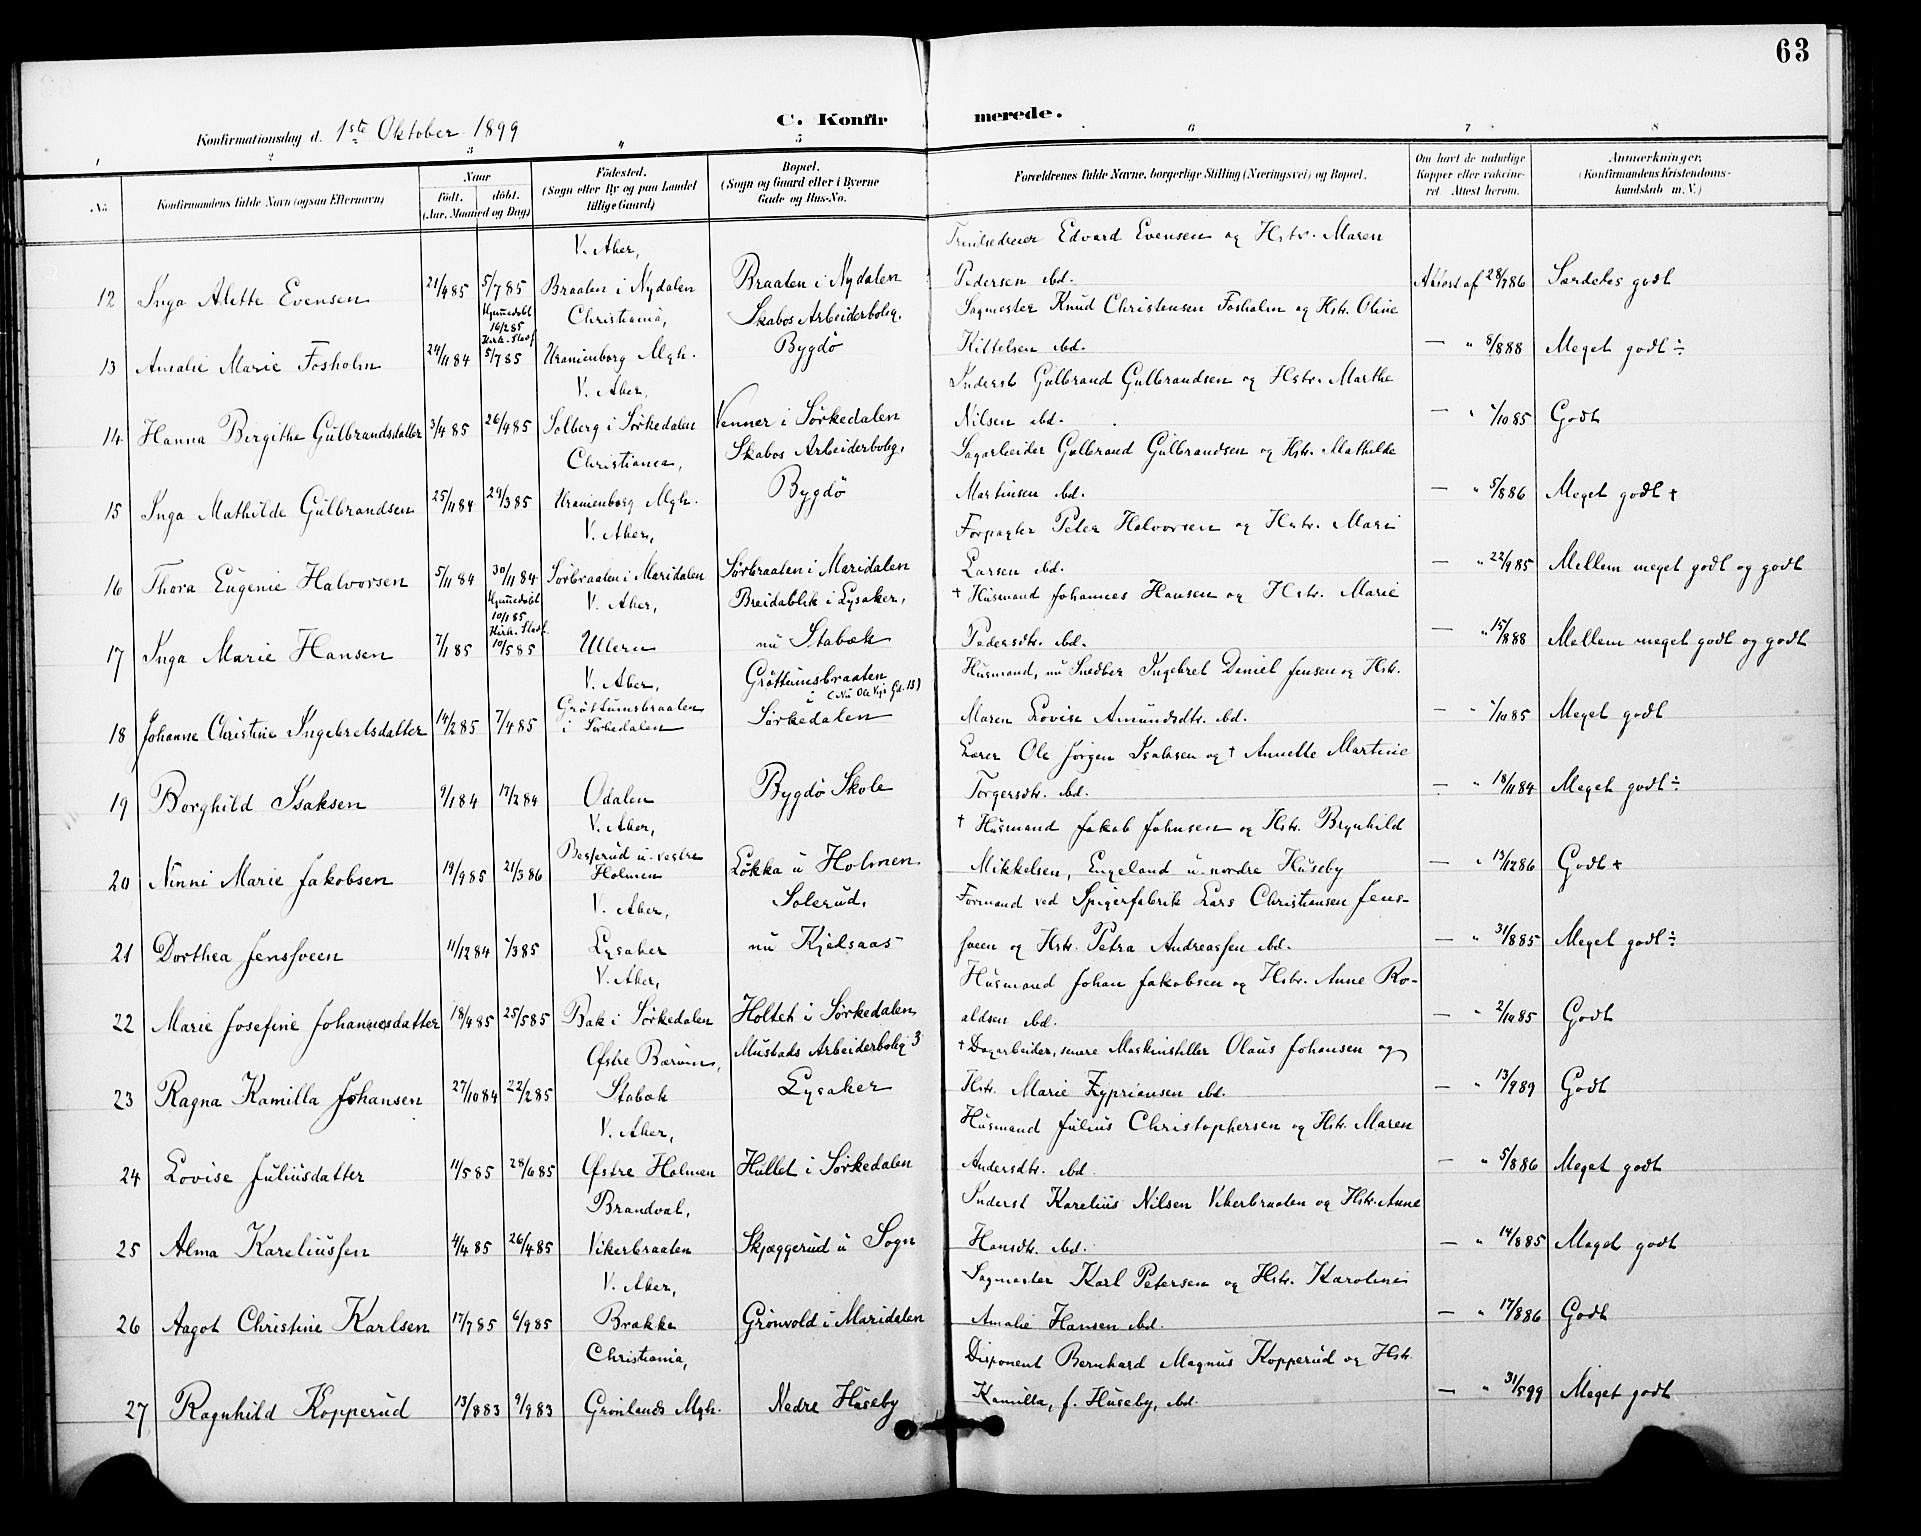 63
Konfirmationsdag d. 1ste Oktober 1899
C. Konfirmerede.
1 2 3 4 5 6 7 8
No.
Konfirmandens fulde Navn (ogsaa Efternavn)
Naar
født. døbt.
(Aar, Maaned og Dag)
Fødested.
(Sogn eller By og paa Landet
tillige Gaard)
Bopæl.
(Sogn og Gaard eller i Byerne
Gade og Hus-No.
Forældrenes fulde Navne, borgerlige Stilling (Næringsvei) og Bopæl.
Om havt de naturlige
Kopper eller vakcine-
ret. Attest herom.
Anmærkninger.
(Konfirmandens Kristendoms-
kundskab m. V.)
V. Aker, Edvard Evensen og Hstr. Maren
12 Inga Alette Evensen 21/4 85 5/7 85 Braaten i Nydalen Braaten i Nydalen Pedersen ibd. Attest af 28/7 86 Særdeles godt
Hjemmedøbt 16/2 85 Kirk. Stadf. Christiania, Skabos Arbeiderbolig. Sagmester Knud Christensen Fosholm og Hstr. Oline
13 Amalie Marie Fosholm 24/11 84 5/7 85 Uranienborg Mgh. Bygdö Kittelsen ibd. — " 8/8 88 Meget godt ÷
V. Aker, Inderst Gulbrand Gulbrandsen og Hstr. Marthe
14 Hanna Birgithe Gulbrandsdatter 3/4 85 26/4 85 Solberg i Sörkedalen Venner i Sörkedalen Nilsen ibd. — " /10 85 Godt
Christiania, Skabos Arbeiderbolig, Sagarbeider Gulbrand Gulbrandsen og Hstr. Mathilde
15 Inga Mathilde Gulbrandsen 25/11 84 29/3 85 Uranienborg Mgh. Bygdö Martinsen ibd. — " 5/8 86 Meget godt +
V. Aker, Forpagter Peter Halvorsen og Hstr. Mari
16 Thora Eugenie Halvorsen 5/11 84 30/11 84 Sörbraaten i Maridalen Sörbraaten i Maridalen Larsen ibd. — " 22/9 85 Mellem meget godt og godt
Hjemmedøbt 10/1 85 Kirk. Stadf. V. Aker, Breidablik i Lysaker, † Husmand Johannes Hansen og Hstr. Marie
17 Inga Marie Hansen 7/1 85 10/5 85 Ullern nu Stabæk Pedersdtr. ibd. — " 15/8 88 Mellem meget godt og godt
V. Aker, Gröttumsbraaten (Nu Ole Vigs Gd. 13) Husmand, nu Snedker Ingebret Daniel Jensen og Hstr.
18 Johanne Christine Ingebretsdatter 14/2 85 7/4 85 Gröttumsbraaten i Sörkedalen i Sörkedalen Maren Lovise Amundsdtr. ibd. — " /10 85 Meget godt
Lærer Ole Jörgen Isaksen og † Annette Martine
19 Borghild Isaksen 9/1 84 17/2 84 Odalen Bygdö Skole Torgersdtr. ibd. — " 18/11 84 Meget godt ÷
V. Aker, † Husmand Jakob Johnsen og Hstr. Brynhild
20 Ninni Marie Jakobsen 19/9 85 21/3 86 Besserud u. vestre Holmen Lökka u Holmen Mikkelsen, Engeland u. nordre Huseby — " 13/12 86 Godt +
V. Aker, Solerud, Formand ved Spigerfabrik Lars Christiansen Jens-
21 Dorthea Jensſveen 11/12 84 /3 85 Lysaker nu Kjelsaas ſveen og Hstr. Petra Andreasſen ibd. — " 31/8 85 Meget godt ÷
V. Aker, Husmand Johan Jakobsen og Hstr. Anne Ro-
22 Marie Josefine Johannesdatter 18/4 85 25/5 85 Bak i Sörkedalen Holtet i Sörkedalen aldsen ibd. — " 2/10 85 Godt
Østre Bærum, Mustads Arbeiderbolig 3 † Dagarbeider, senere Maskinstiller Olaus Johansen og
23 Ragna Kamilla Johansen 27/10 84 22/2 85 Stabæk Lysaker Hstr. Marie Zypriansen ibd. — " 13/9 89 Godt
V. Aker, Husmand Julius Christophersen og Hstr. Maren
24 Lovise Juliusdatter 11/5 85 28/6 85 Østre Holmen Hullet i Sörkedalen Andersdtr. ibd. — " 5/8 86 Meget godt
Brandval, Inderst Karelius Nilsen Vikerbraaten og Hstr. Anne
25 Alma Kareliusſen 4/4 85 26/4 85 Vikerbraaten Skjæggerud u Sogn Hansdtr. ibd. — " 14/8 85 Meget godt
V. Aker, Sagmester Karl Petersen og Hstr. Karoline
26 Aagot Christine Karlsen 17/7 85 6/9 85 Brække Grönvold i Maridalen Amalie Hansen ibd. — " 17/8 86 Godt
Christiania, Disponent Bernhard Magnus Kopperud og Hstr.
27 Ragnhild Kopperud 13/8 83 9/9 83 Grönlands Mgh. Nedre Huseby Kamilla, f. Huseby, ibd. — " 31/5 99 Meget godt